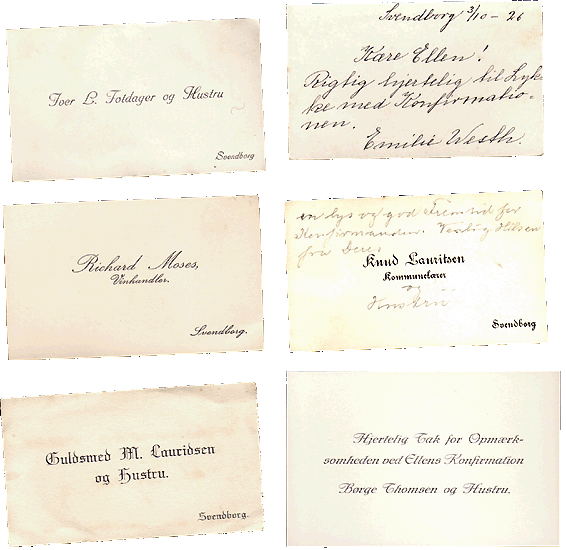 Iver L. Toldager og Hustru
Svendborg
Svendborg 3/10 - 26
Kære Ellen!
Rigtig hjertelig til Lyk-
ke med Konfirmatio-
nen.
Emilie Westh.
Richard Moses,
Vinhandler.
Svendborg.
en lys og god Fremtid for
Konfirmanden. Venlig Hilsen
fra Deres
Knud Lauritsen
Kommunelærer
og
Hustru
Svendborg
Guldsmed M. Lauridsen
og Hustru.
Svendborg.
Hjertelig Tak for Opmærk-
somheden ved Ellens Konfirmation
Børge Thomsen og Hustru.